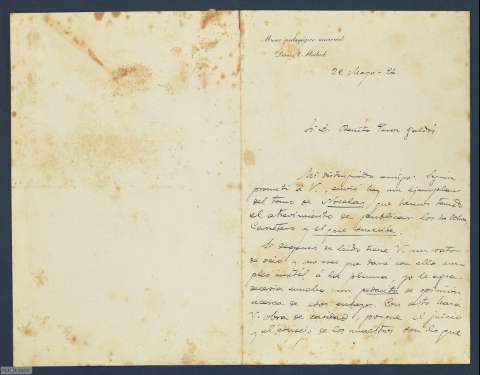 Museo pedagógico nacional
Madrid
Sr. D. Benito Perez Galdós
Mi distinguido amigo: Según
prometí á V., envío hoy un ejemplar
del tomo de Novelas que hemos tenido
el atrevimiento de publicar los
y el que suscribe.
Si después de leido tiene V. un rato
de ocio y no cree que dará con ello
á la pluma, yo le agra-
decería mucho un de opinión
acerca de ensayo. Con esto hará
V. obra de caridad, porque el juicio
y el consejo de los maestros son lo que